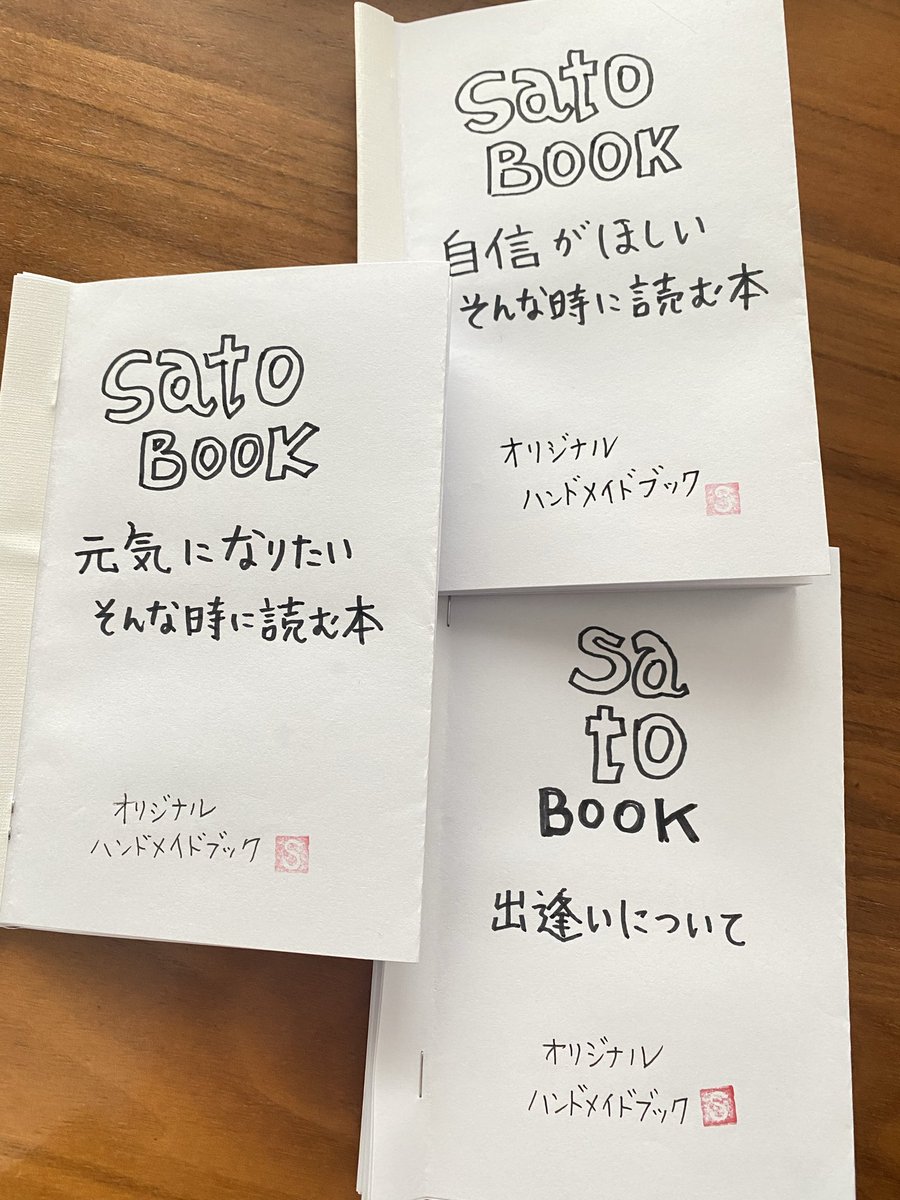 sato
BOOK
自信がほしい
そんな時に読む本
オリジナル
ハンドメイドブック
S
sato
BOOK
元気になりたい
そんな時に読む本
オリジナル
ハンドメイドブック
S
sa
to
BOOK
出逢いについて
オリジナル
ハンドメイドブック
S